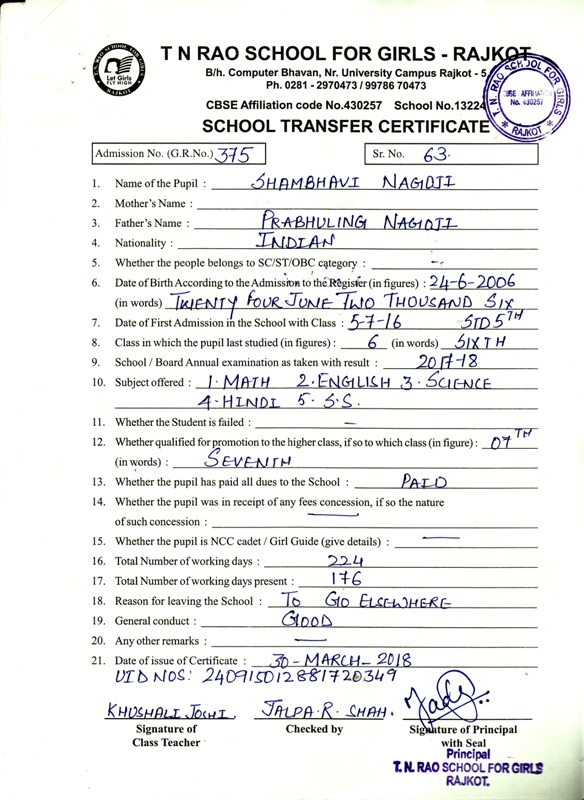 T. N. RAO SCHOOL FOR GIRLS
Let Girls
FLY HIGH
RAJKOT
T N RAO SCHOOL FOR GIRLS - RAJKOT
B/h. Computer Bhavan, Nr. University Campus Rajkot - 5
Ph. 0281 - 2970473 / 99786 70473
CBSE Affiliation code No.430257 School No.13224
T. N. RAO SCHOOL FOR GIRLS
CBSE AFFILIATION
No. 430257
* RAJKOT *
SCHOOL TRANSFER CERTIFICATE
Admission No. (G.R.No.) 375 Sr. No. 63.
1. Name of the Pupil : SHAMBHAVI NAGOJI
2. Mother's Name :
3. Father's Name : PRABHULING NAGOJI
4. Nationality : INDIAN
5. Whether the people belongs to SC/ST/OBC category : -
6. Date of Birth According to the Admission to the Register (in figures) : 24-6-2006
(in words) TWENTY FOUR JUNE TWO THOUSAND SIX
7. Date of First Admission in the School with Class : 5-7-16 STD 5TH
8. Class in which the pupil last studied (in figures) : 6 (in words) SIXTH
9. School / Board Annual examination as taken with result : 2017-18
10. Subject offered : 1. MATH 2. ENGLISH 3. SCIENCE
4. HINDI 5. S.S.
11. Whether the Student is failed : -
12. Whether qualified for promotion to the higher class, if so to which class (in figure) : 07TH
(in words) : SEVENTH
13. Whether the pupil has paid all dues to the School : PAID
14. Whether the pupil was in receipt of any fees concession, if so the nature
of such concession : -
15. Whether the pupil is NCC cadet / Girl Guide (give details) : -
16. Total Number of working days : 224
17. Total Number of working days present : 176
18. Reason for leaving the School : TO GO ELSEWHERE
19. General conduct : GOOD
20. Any other remarks : -
21. Date of issue of Certificate : 30-MARCH-2018
UID NOS: 240915012881720349
KHUSHALI JOSHI. JALPA.R. SHAH.
Signature of Checked by Signature of Principal
Class Teacher with Seal
Principal
T. N. RAO SCHOOL FOR GIRLS
RAJKOT.